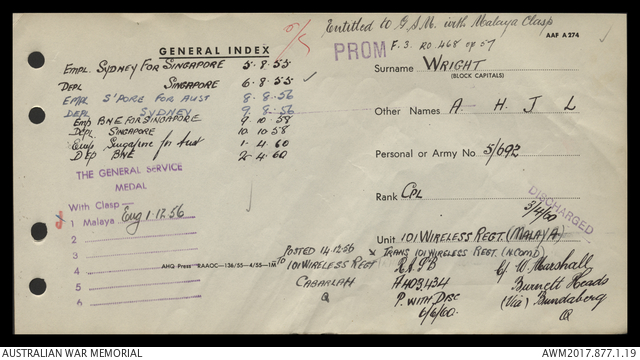 Entitled to G.S.M. with Malaya Clasp
AAF A 274
PROM F.S. RO.468 op 57
GENERAL INDEX
Surname WRIGHT
(BLOCK CAPITALS)
EMPL. SYDNEY FOR SINGAPORE 5.8.55
DEPL SINGAPORE 6.8.55
EMPL S'PORE FOR AUST 8.8.56
DEPL SYDNEY 9.8.56
Emp BNE FOR SINGAPORE 9.10.58
Depl. SINGAPORE 10.10.58
Emp Singapore for Aust 1.4.60
DEP BNE 2.4.60
Other Names A H J L
Personal or Army No 5/692
Rank CPL
DISCHARGED
3/4/60
THE GENERAL SERVICE
MEDAL
With Clasp
1 Malaya Eng 1.12.56
2
3
4
5
6
Unit 101 WIRELESS REGT. (MALAYA)
AHQ Press RAAOC—136/55—4/55—1M
POSTED 14.12.56
TO 101 WIRELESS REGT
CABARLAH
Q
x TRANS 101 WIRELESS REGT. (N COMD)
A409,434
P. WITH DISC
6/6/60.
C/ W. Marshall
Burnett Heads
(Via) Bundaberg
Q
AUSTRALIAN WAR MEMORIAL
AWM2017.877.1.19